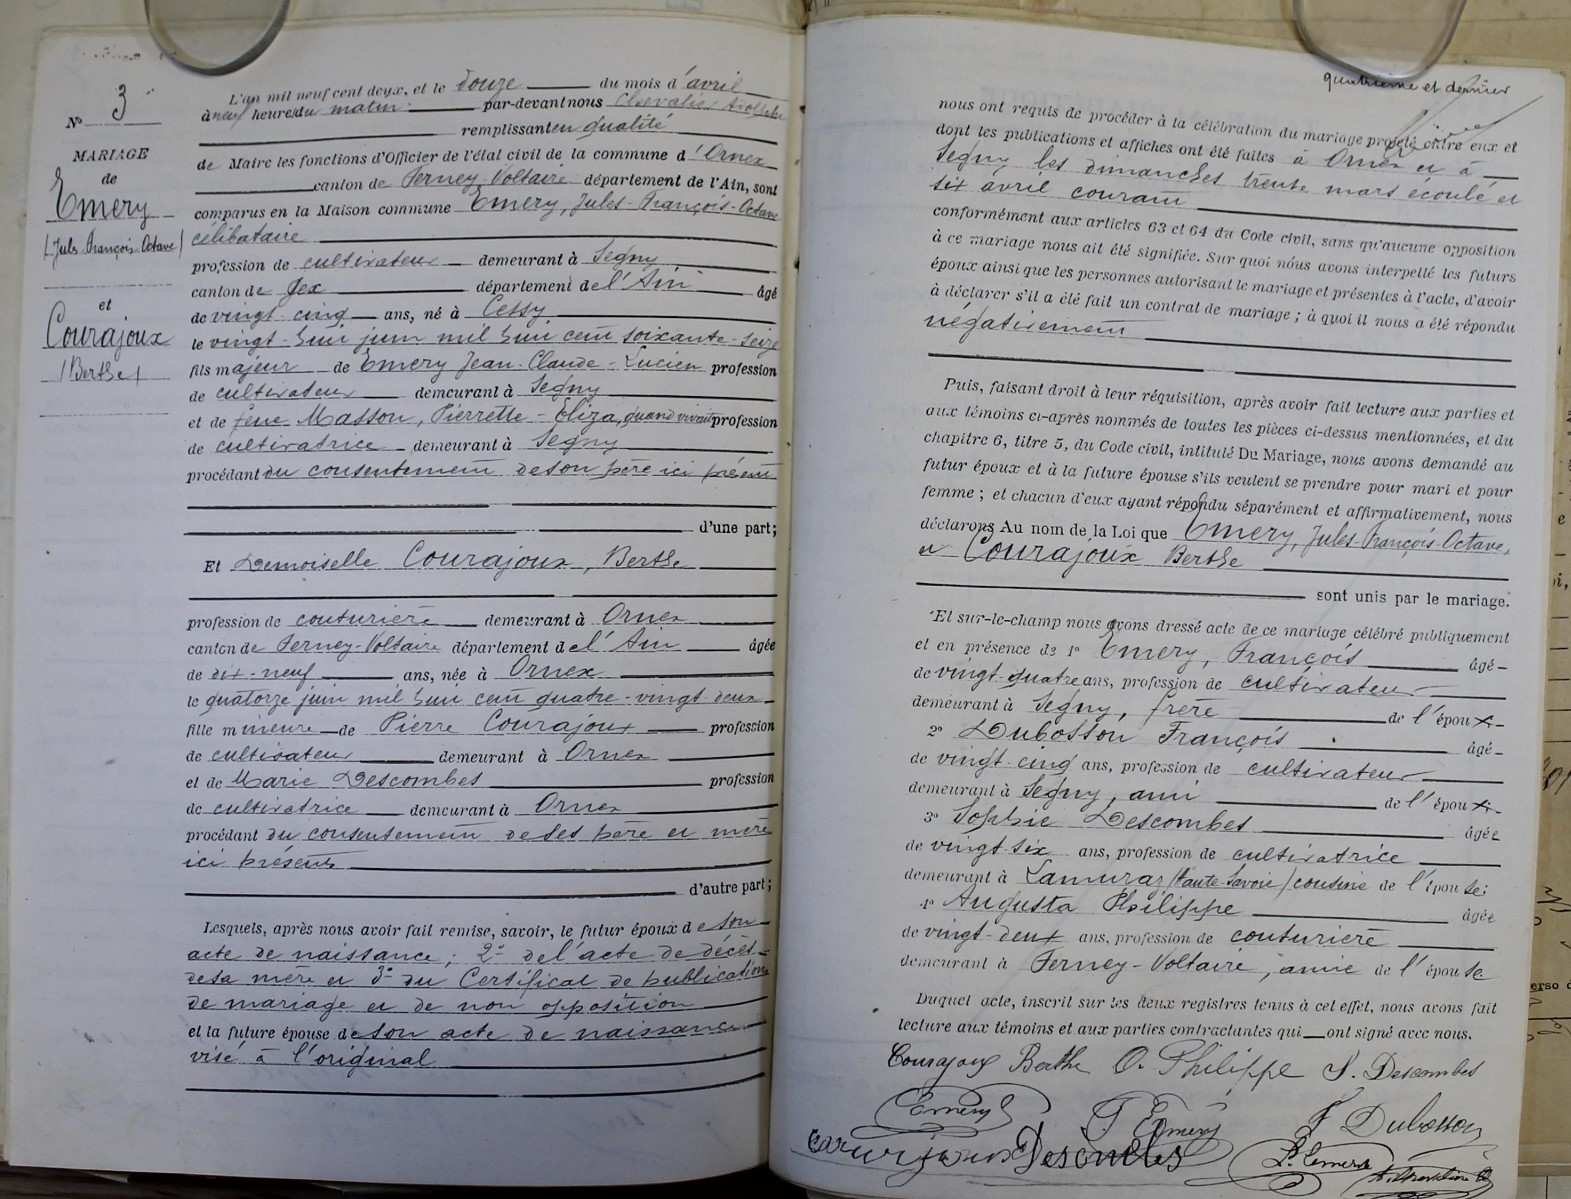 N° 3
MARIAGE
de
Emery
(Jules François Octave)
et
Courajoux
(Berthe)
L'an mil neuf cent deux, et le douze du mois d'avril
à neuf heures du matin par-devant nous Chevalier
remplissant en qualité
de Maire les fonctions d'Officier de l'état civil de la commune d'Ornex
canton de Ferney-Voltaire département de l'Ain, sont
comparus en la Maison commune Emery, Jules-François-Octave
célibataire
profession de cultivateur demeurant à Segny
canton de Gex département de l'Ain âgé
de vingt-cinq ans, né à Cessy
le vingt-huit juin mil huit cent soixante-seize
fils majeur de Emery Jean-Claude-Lucien profession
de cultivateur demeurant à Segny
et de feue Masson, Pierrette-Eliza, quand vivait profession
de cultivatrice demeurant à Segny
procédant du consentement de son père ici présent
d'une part;
Et Demoiselle Courajoux, Berthe
profession de couturière demeurant à Ornex
canton de Ferney-Voltaire département de l'Ain âgée
de dix-neuf ans, née à Ornex
le quatorze juin mil huit cent quatre-vingt-deux
fille mineure de Pierre Courajoux profession
de cultivateur demeurant à Ornex
et de Marie Descombes profession
de cultivatrice demeurant à Ornex
procédant du consentement de ses père et mère
ici présents
d'autre part;
Lesquels, après nous avoir fait remise, savoir, le futur époux de son
acte de naissance; 2° de l'acte de décès
de sa mère et 3° du Certificat de publication
de mariage et de non opposition
et la future épouse de son acte de naissance
visé à l'original
quatrième et dernier
nous ont requis de procéder à la célébration du mariage projeté entre eux et
dont les publications et affiches ont été faites à Ornex et à
Segny les dimanches trente mars écoulé et
six avril courant
conformément aux articles 63 et 64 du Code civil, sans qu'aucune opposition
à ce mariage nous ait été signifiée. Sur quoi nous avons interpellé les futurs
époux ainsi que les personnes autorisant le mariage et présentes à l'acte, d'avoir
à déclarer s'il a été fait un contrat de mariage; à quoi il nous a été répondu
négativement
Puis, faisant droit à leur réquisition, après avoir fait lecture aux parties et
aux témoins ci-après nommés de toutes les pièces ci-dessus mentionnées, et du
chapitre 6, titre 5, du Code civil, intitulé Du Mariage, nous avons demandé au
futur époux et à la future épouse s'ils veulent se prendre pour mari et pour
femme; et chacun d'eux ayant répondu séparément et affirmativement, nous
déclarons Au nom de la Loi que Emery, Jules François-Octave,
et Courajoux Berthe
sont unis par le mariage.
Et sur-le-champ nous avons dressé acte de ce mariage célébré publiquement
et en présence de 1° Emery, François âgé
de vingt-quatre ans, profession de cultivateur
demeurant à Segny, frère de l'époux
2° Dubosson François âgé
de vingt-cinq ans, profession de cultivateur
demeurant à Segny, ami de l'époux
3° Sophie Descombes âgée
de vingt-six ans, profession de cultivatrice
demeurant à Lamuraz (Haute Savoie) cousine de l'épouse;
4° Augusta Philippe âgée
de vingt-deux ans, profession de couturière
demeurant à Ferney-Voltaire, amie de l'épouse
Duquel acte, inscrit sur les deux registres tenus à cet effet, nous avons fait
lecture aux témoins et aux parties contractantes qui ont signé avec nous.
Courajoux Berthe A. Philippe S. Descombes
Emery F. Emery F. Dubosson
Courajoux Descombes L. Emery